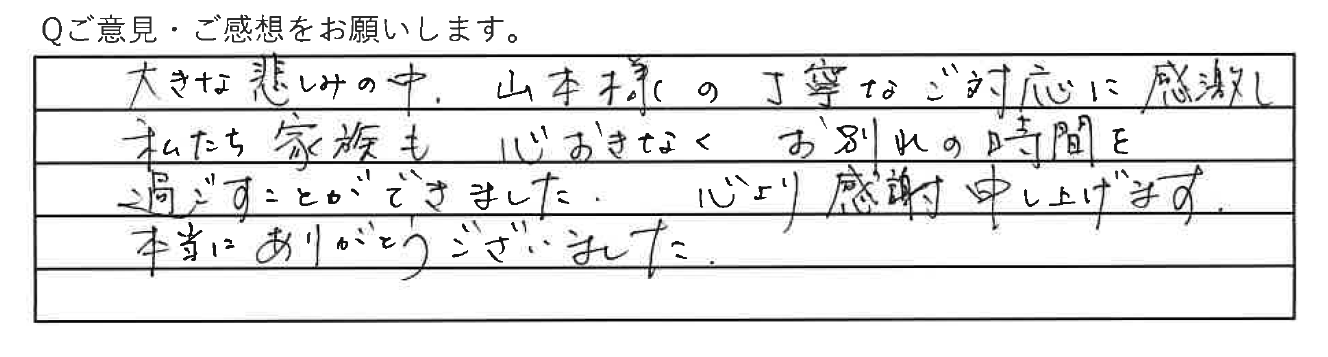 Qご意見・ご感想をお願いします。
大きな悲しみの中、山本様の丁寧なご対応に感激し
私たち家族も 心おきなく お別れの時間を
過ごすことができました。 心より感謝申し上げます。
本当にありがとうございました。